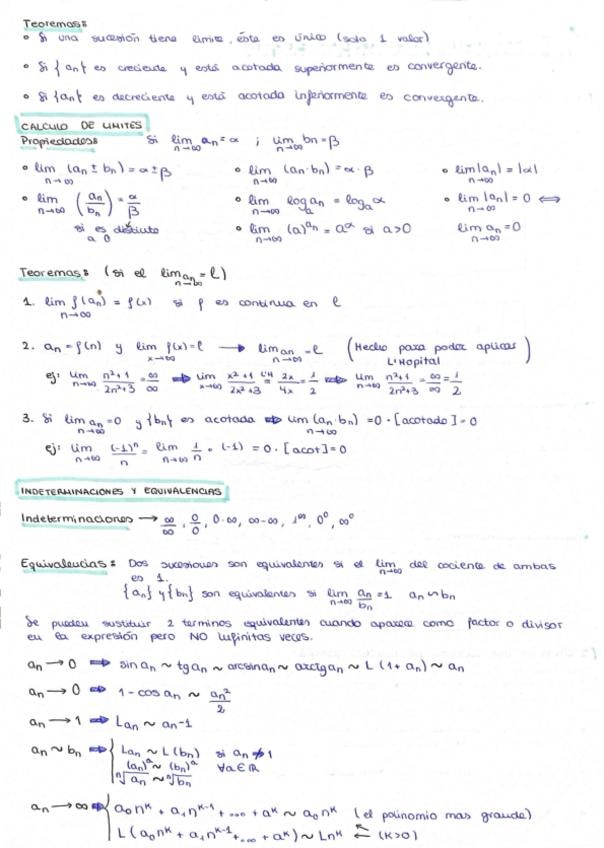 Teoremas:
• Si una sucesión tiene limite, éste es único (solo 1 valor)
• Si {an} es creciente y está acotada superiormente es convergente.
• Si {an} es decreciente y está acotada inferiormente es convergente.
CALCULO DE LIMITES
Propiedades: Si lim n→∞ an = α ; lim n→∞ bn = β
• lim n→∞ (an ± bn) = α ± β • lim n→∞ (an · bn) = α · β • lim n→∞ |an| = |α|
• lim n→∞ (an/bn) = α/β • lim n→∞ loga an = loga α • lim n→∞ |an| = 0 ⟺
si es distinto a 0 • lim n→∞ (a)^an = a^α si a>0 lim n→∞ an = 0
Teoremas: (si el lim n→∞ an = l)
1. lim n→∞ f(an) = f(x) si f es continua en l
2. an = f(n) y lim x→∞ f(x) = l → lim n→∞ an = l (Hecho para poder aplicar L'Hopital)
ej: lim n→∞ n²+1/2n²+3 = ∞/∞ ⇒ lim x→∞ x²+1/2x²+3 =L'H 2x/4x = 1/2 ⇒ lim n→∞ n²+1/2n²+3 = ∞/∞ = 1/2
3. Si lim n→∞ an = 0 y {bn} es acotada ⇒ lim n→∞ (an · bn) = 0 · [acotado] = 0
ej: lim n→∞ (-1)^n/n = lim n→∞ 1/n · (-1) = 0 · [acot] = 0
INDETERMINACIONES Y EQUIVALENCIAS
Indeterminaciones → ∞/∞, 0/0, 0·∞, ∞-∞, 1^∞, 0^0, ∞^0
Equivalencias: Dos sucesiones son equivalentes si el lim n→∞ del cociente de ambas
es 1.
{an} y {bn} son equivalentes si lim n→∞ an/bn = 1 an ∼ bn
Se pueden sustituir 2 terminos equivalentes cuando aparece como factor o divisor
en la expresión pero NO infinitas veces.
an → 0 ⇒ sin an ∼ tg an ∼ arcsin an ∼ arctg an ∼ L(1+an) ∼ an
an → 0 ⇒ 1 - cos an ∼ an²/2
an → 1 ⇒ Lan ∼ an-1
an ∼ bn ⇒ { Lan ∼ L(bn) si an ↛ 1
(an)^a ∼ (bn)^a ∀a∈ℝ
ⁿ√an ∼ ⁿ√bn
an → ∞ ⇒ { a0n^k + a1n^k-1 + ... + a^k ∼ a0n^k (el polinomio mas grande)
L(a0n^k + a1n^k-1 + ... + a^k) ∼ Ln^k ← (k>0)